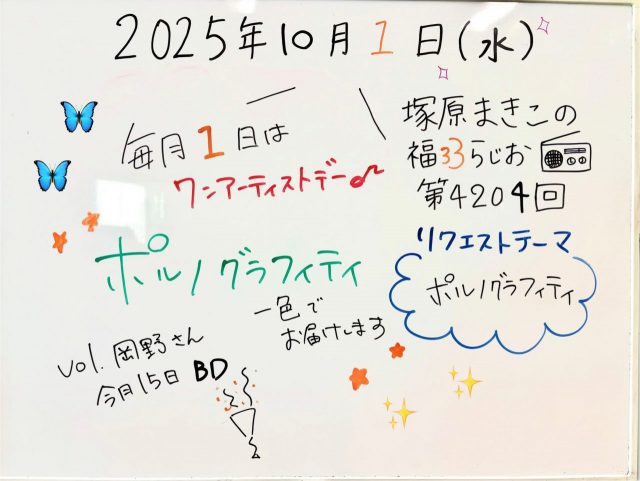 2025年10月1日(水)
毎月1日は
ワンアーティストデー
塚原まきこの
福33らじお
第4204回
リクエストテーマ
ポルノグラフィティ
ポルノグラフィティ
一色で
お届けします
vol.岡野さん
今月15日 BD